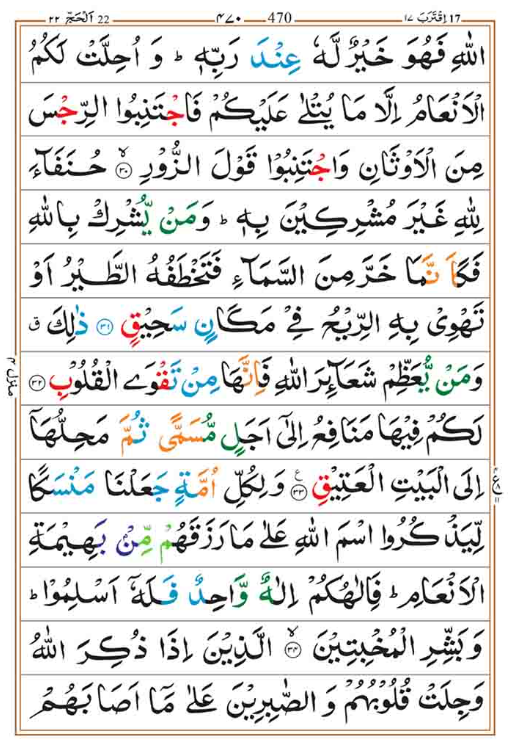 17 اِقْتَرَبَ ١٧ 470 ٤٧٠ 22 اَلْحَجّ ٢٢
اللّٰهِ فَهُوَ خَيْرٌ لَّهٗ عِنْدَ رَبِّهٖ ؕ وَ اُحِلَّتْ لَكُمُ
الْاَنْعَامُ اِلَّا مَا يُتْلٰى عَلَيْكُمْ فَاجْتَنِبُوا الرِّجْسَ
مِنَ الْاَوْثَانِ وَاجْتَنِبُوْا قَوْلَ الزُّوْرِ ۙ‏﴿۳۰﴾ حُنَفَآءَ
لِلّٰهِ غَيْرَ مُشْرِكِيْنَ بِهٖ ؕ وَمَنْ يُّشْرِكْ بِاللّٰهِ
فَكَاَنَّمَا خَرَّ مِنَ السَّمَآءِ فَتَخْطَفُهُ الطَّيْرُ اَوْ
تَهْوِىْ بِهِ الرِّيْحُ فِىْ مَكَانٍ سَحِيْقٍ ﴿۳۱﴾ ذٰلِكَ ق
وَمَنْ يُّعَظِّمْ شَعَآئِرَ اللّٰهِ فَاِنَّهَا مِنْ تَقْوَى الْقُلُوْبِ ﴿۳۲﴾
لَكُمْ فِيْهَا مَنَافِعُ اِلٰٓى اَجَلٍ مُّسَمًّى ثُمَّ مَحِلُّهَاۤ
اِلَى الْبَيْتِ الْعَتِيْقِ ﴿۳۳﴾ ع وَلِكُلِّ اُمَّةٍ جَعَلْنَا مَنْسَكًا
لِّيَذْكُرُوا اسْمَ اللّٰهِ عَلٰى مَا رَزَقَهُمْ مِّنْۢ بَهِيْمَةِ
الْاَنْعَامِ ؕ فَاِلٰهُكُمْ اِلٰهٌ وَّاحِدٌ فَلَهٗۤ اَسْلِمُوْا ؕ
وَبَشِّرِ الْمُخْبِتِيْنَ ۙ‏﴿۳۴﴾ الَّذِيْنَ اِذَا ذُكِرَ اللّٰهُ
وَجِلَتْ قُلُوْبُهُمْ وَ الصّٰبِرِيْنَ عَلٰى مَاۤ اَصَابَهُمْ
منزل ٤